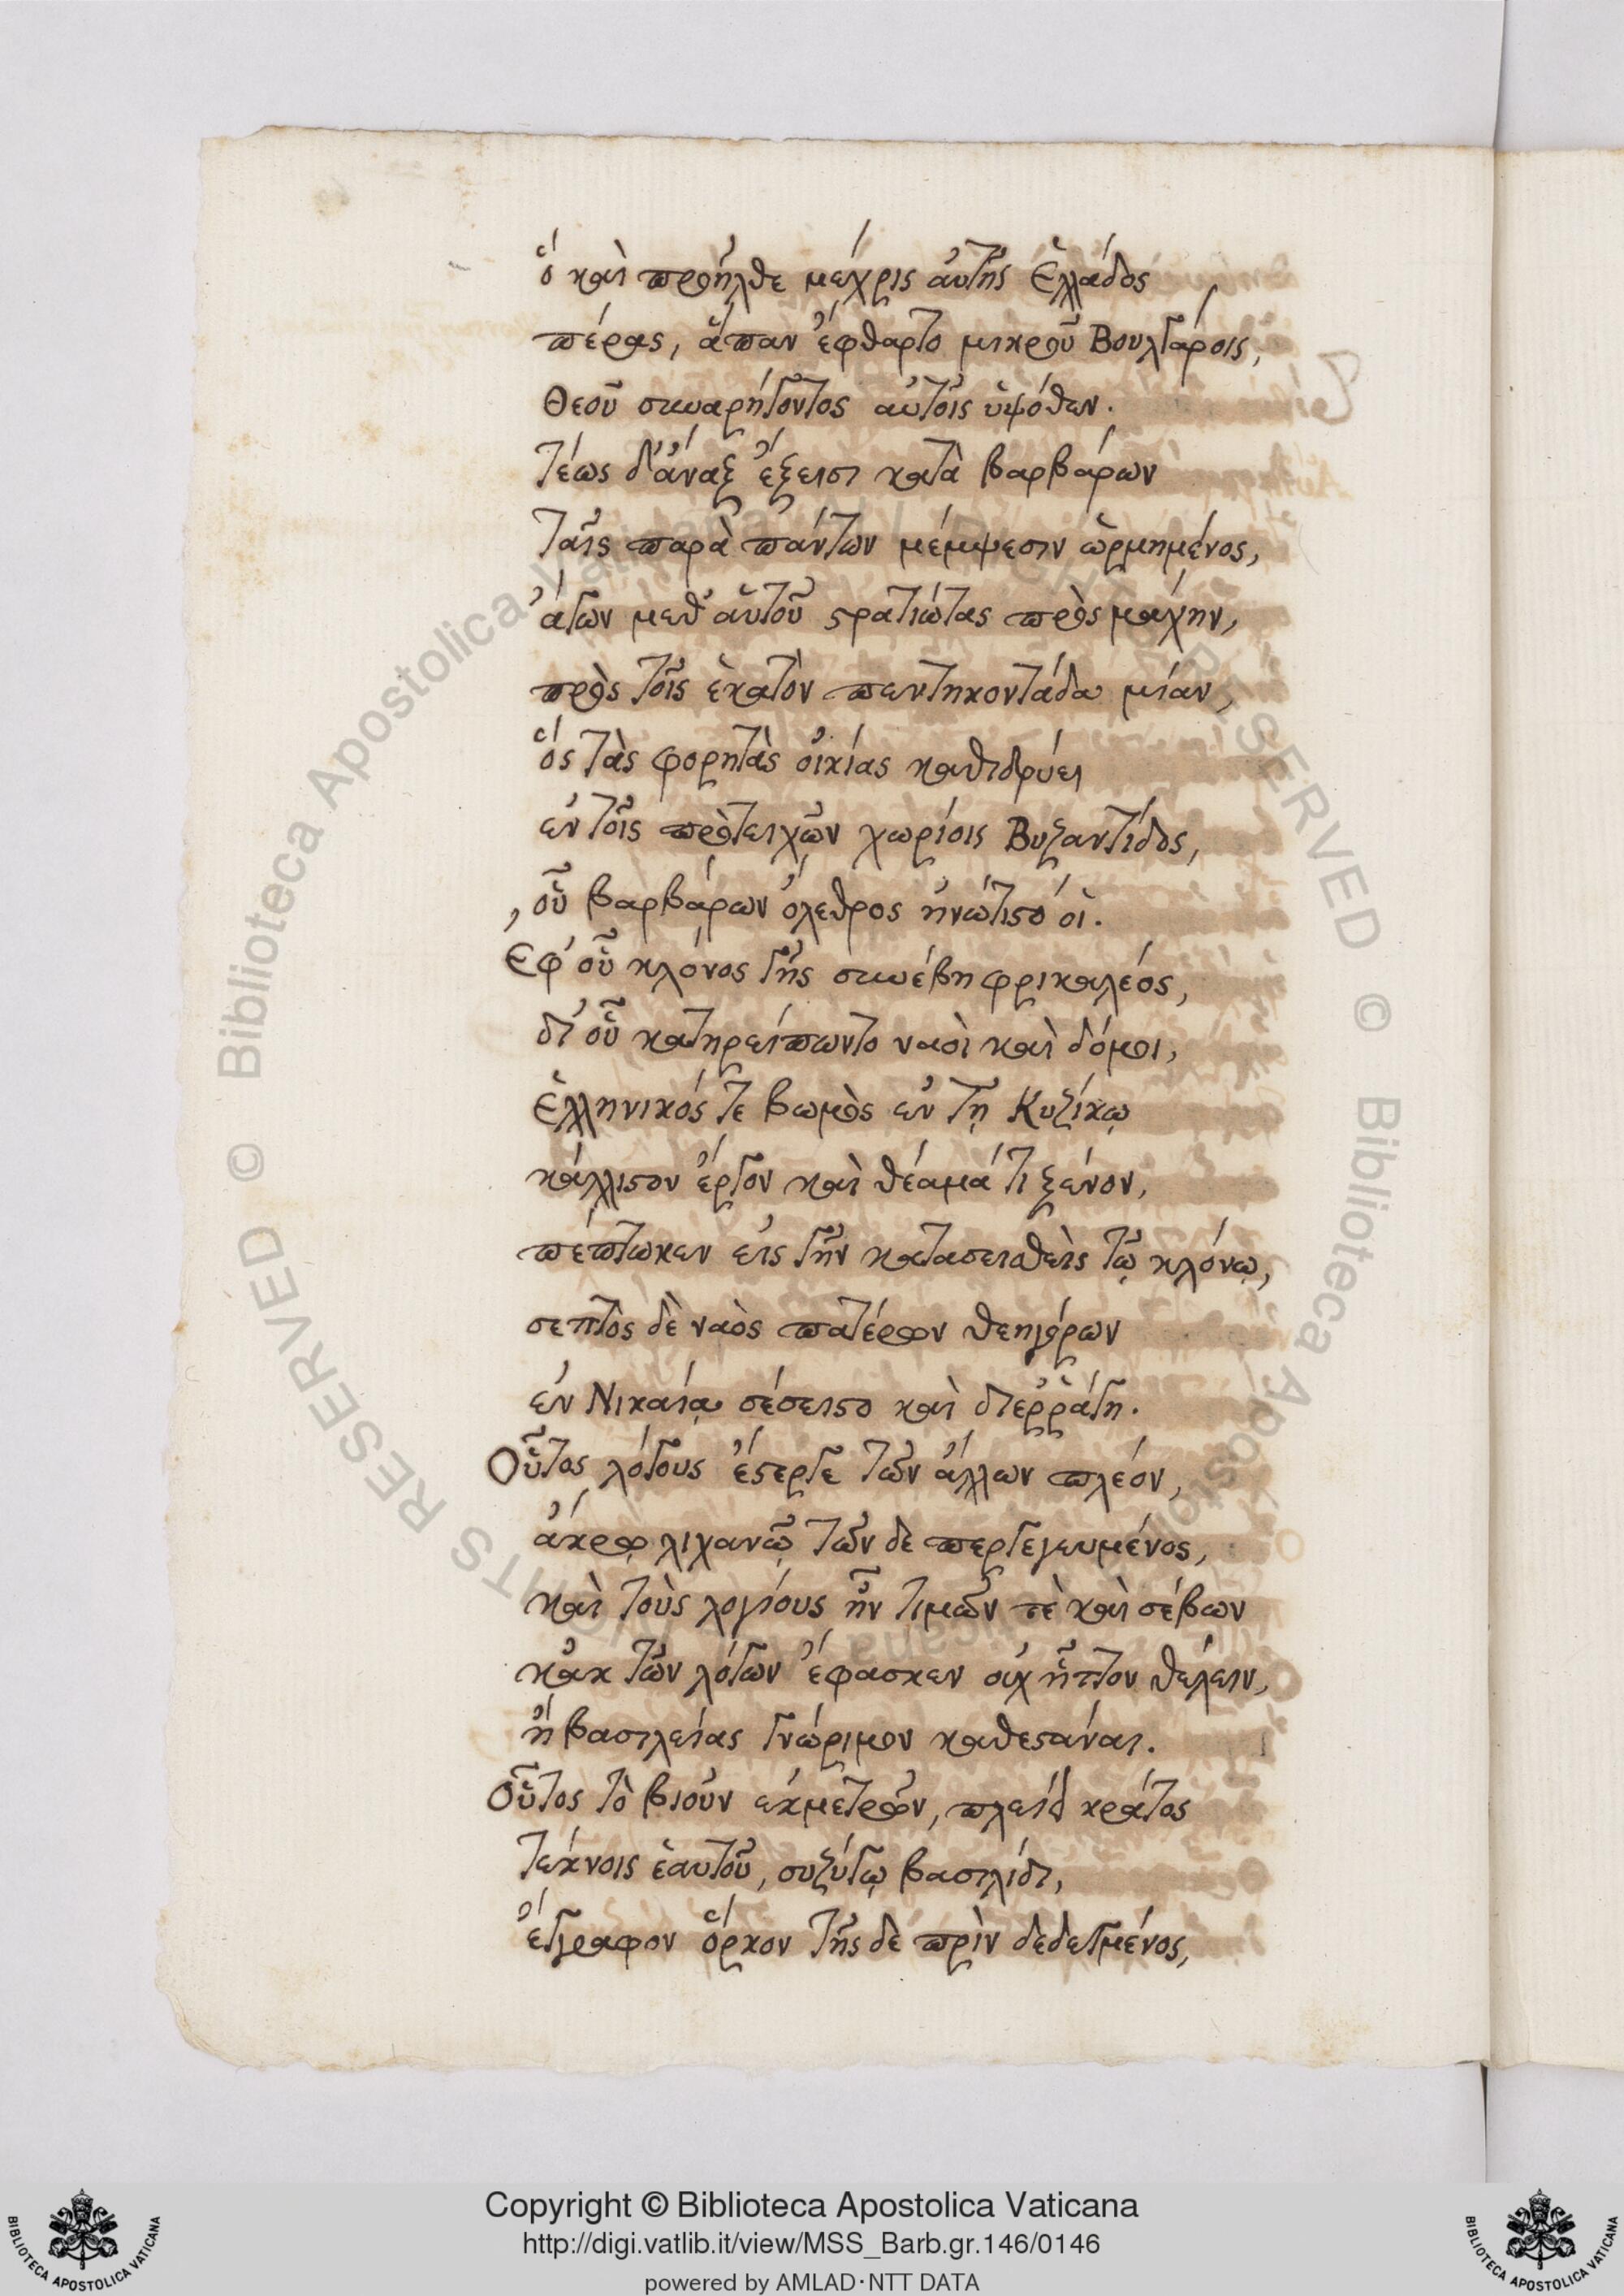 ὃ καὶ προῆλθε μέχρις αὐτῆς Ἑλλάδος
πέρας, ἅπαν ἔφθαρτο μικροῦ Βουλγάροις,
Θεοῦ συναρήγοντος αὐτοῖς ὑψόθεν.
τέως δ' ἄναξ ἔξεισι κατὰ βαρβάρων
ταῖς παρὰ πάντων μέμψεσιν ὡρμημένος,
ἄγων μεθ' αὑτοῦ στρατιώτας πρὸς μάχην,
πρὸς τοῖς ἑκατὸν πεντηκοντάδα μίαν,
ὃς τὰς φορητὰς οἰκίας καθιδρύει
ἐν τοῖς πρὸ τειχῶν χωρίοις Βυζαντίδος,
οὗ βαρβάρων ὄλεθρος ἠνώτιστό οἱ.
Εφ' οὗ κλόνος γῆς συνέβη φρικαλέος,
δι' οὗ κατηρείπωντο ναοὶ καὶ δόμοι,
Ἑλληνικός τε βωμὸς ἐν τῇ Κυζίκῳ
κάλλιστον ἔργον καὶ θέαμά τι ξένον,
πέπτωκεν εἰς γῆν κατασεισθεὶς τῷ κλόνῳ,
σεπτὸς δὲ ναὸς πατέρων θεηγόρων
ἐν Νικαίᾳ σέσειστο καὶ διεῤῥάγη.
Οὗτος λόγους ἔστεργε τῶν ἄλλων πλέον,
ἄκρῳ λιχανῷ τῶν δε περ γεγευμένος,
καὶ τοὺς λογίους ἦν τιμῶν τὲ καὶ σέβων
κἀκ τῶν λόγων ἔφασκεν οὐχ ἧττον θέλειν,
ἢ βασιλείας γνώριμον καθεστάναι.
Οὗτος τὸ βιοῦν ἐκμετρῶν, πλεῖ κράτος
τέκνοις ἑαυτοῦ, συζύγῳ βασιλίδι,
ἔγγραφον ὅρκον τῆς δὲ πρὶν δεδεγμένος,
Copyright © Biblioteca Apostolica Vaticana
http://digi.vatlib.it/view/MSS_Barb.gr.146/0146
powered by AMLAD·NTT DATA